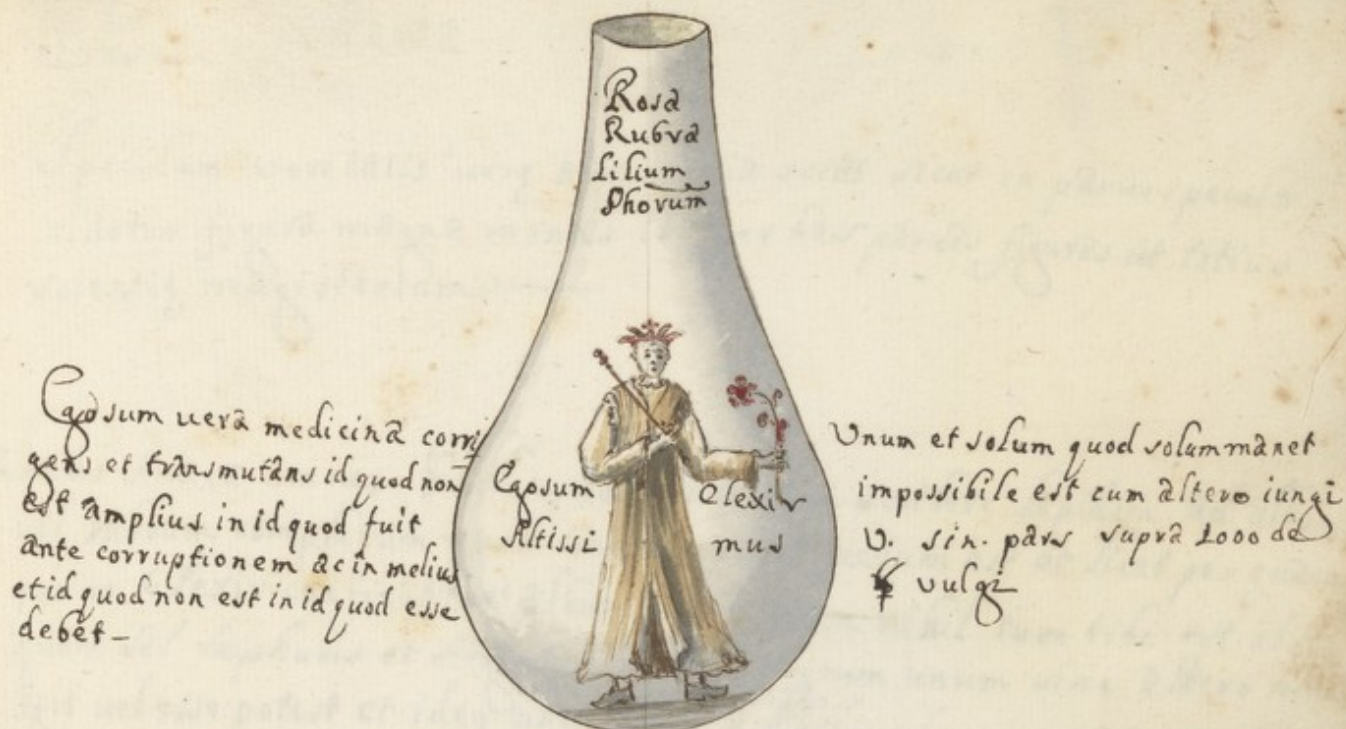 Rosa
Rubra
Lilium
Phorum
Egosum uera medicina corri
gens et transmutans id quod non
est amplius in id quod fuit
ante corruptionem ac in melius
et id quod non est in id quod esse
debet–
Egosum Elexir
Altissi mus
Vnum et solum quod solum manet
impossibile est cum altero iungi
V. sin. pars supra 1000 de
☿ vulgi